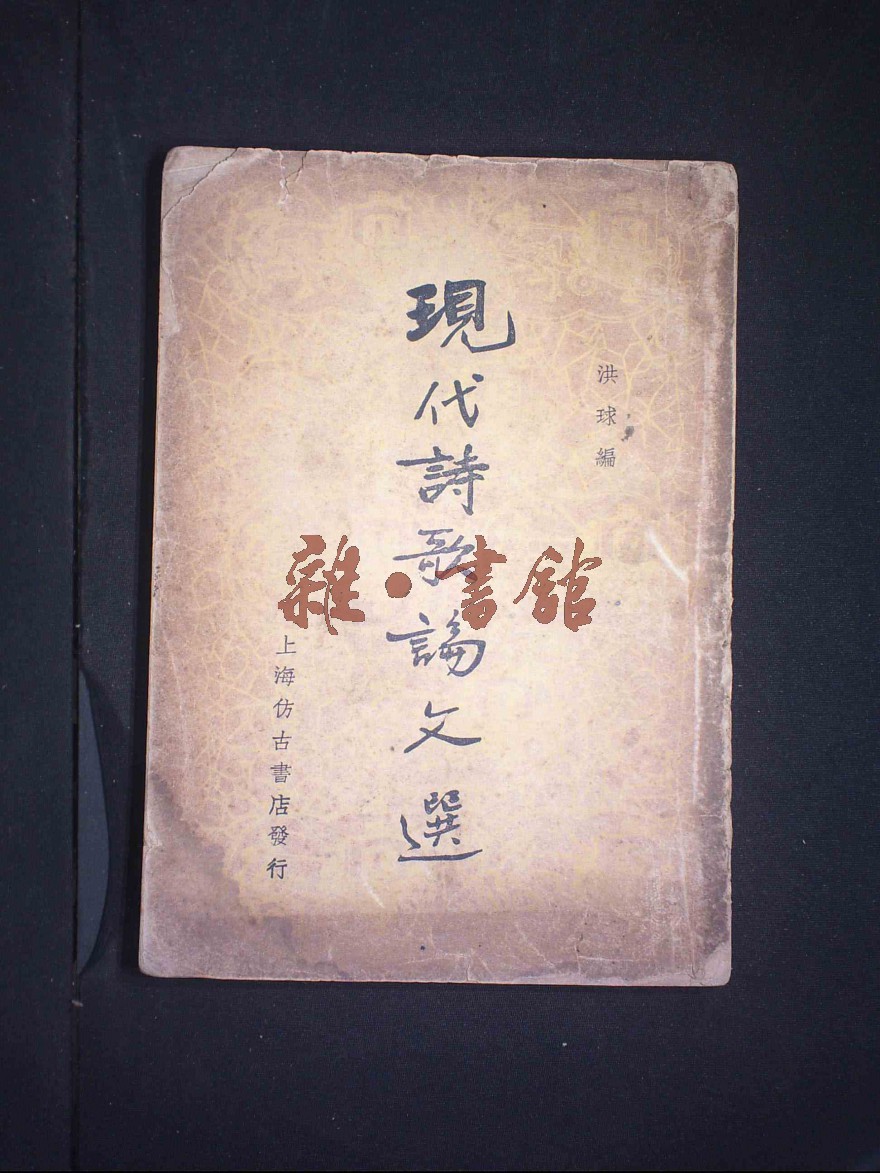 洪球編
現代詩歌論文選
上海仿古書店發行
雜·書館